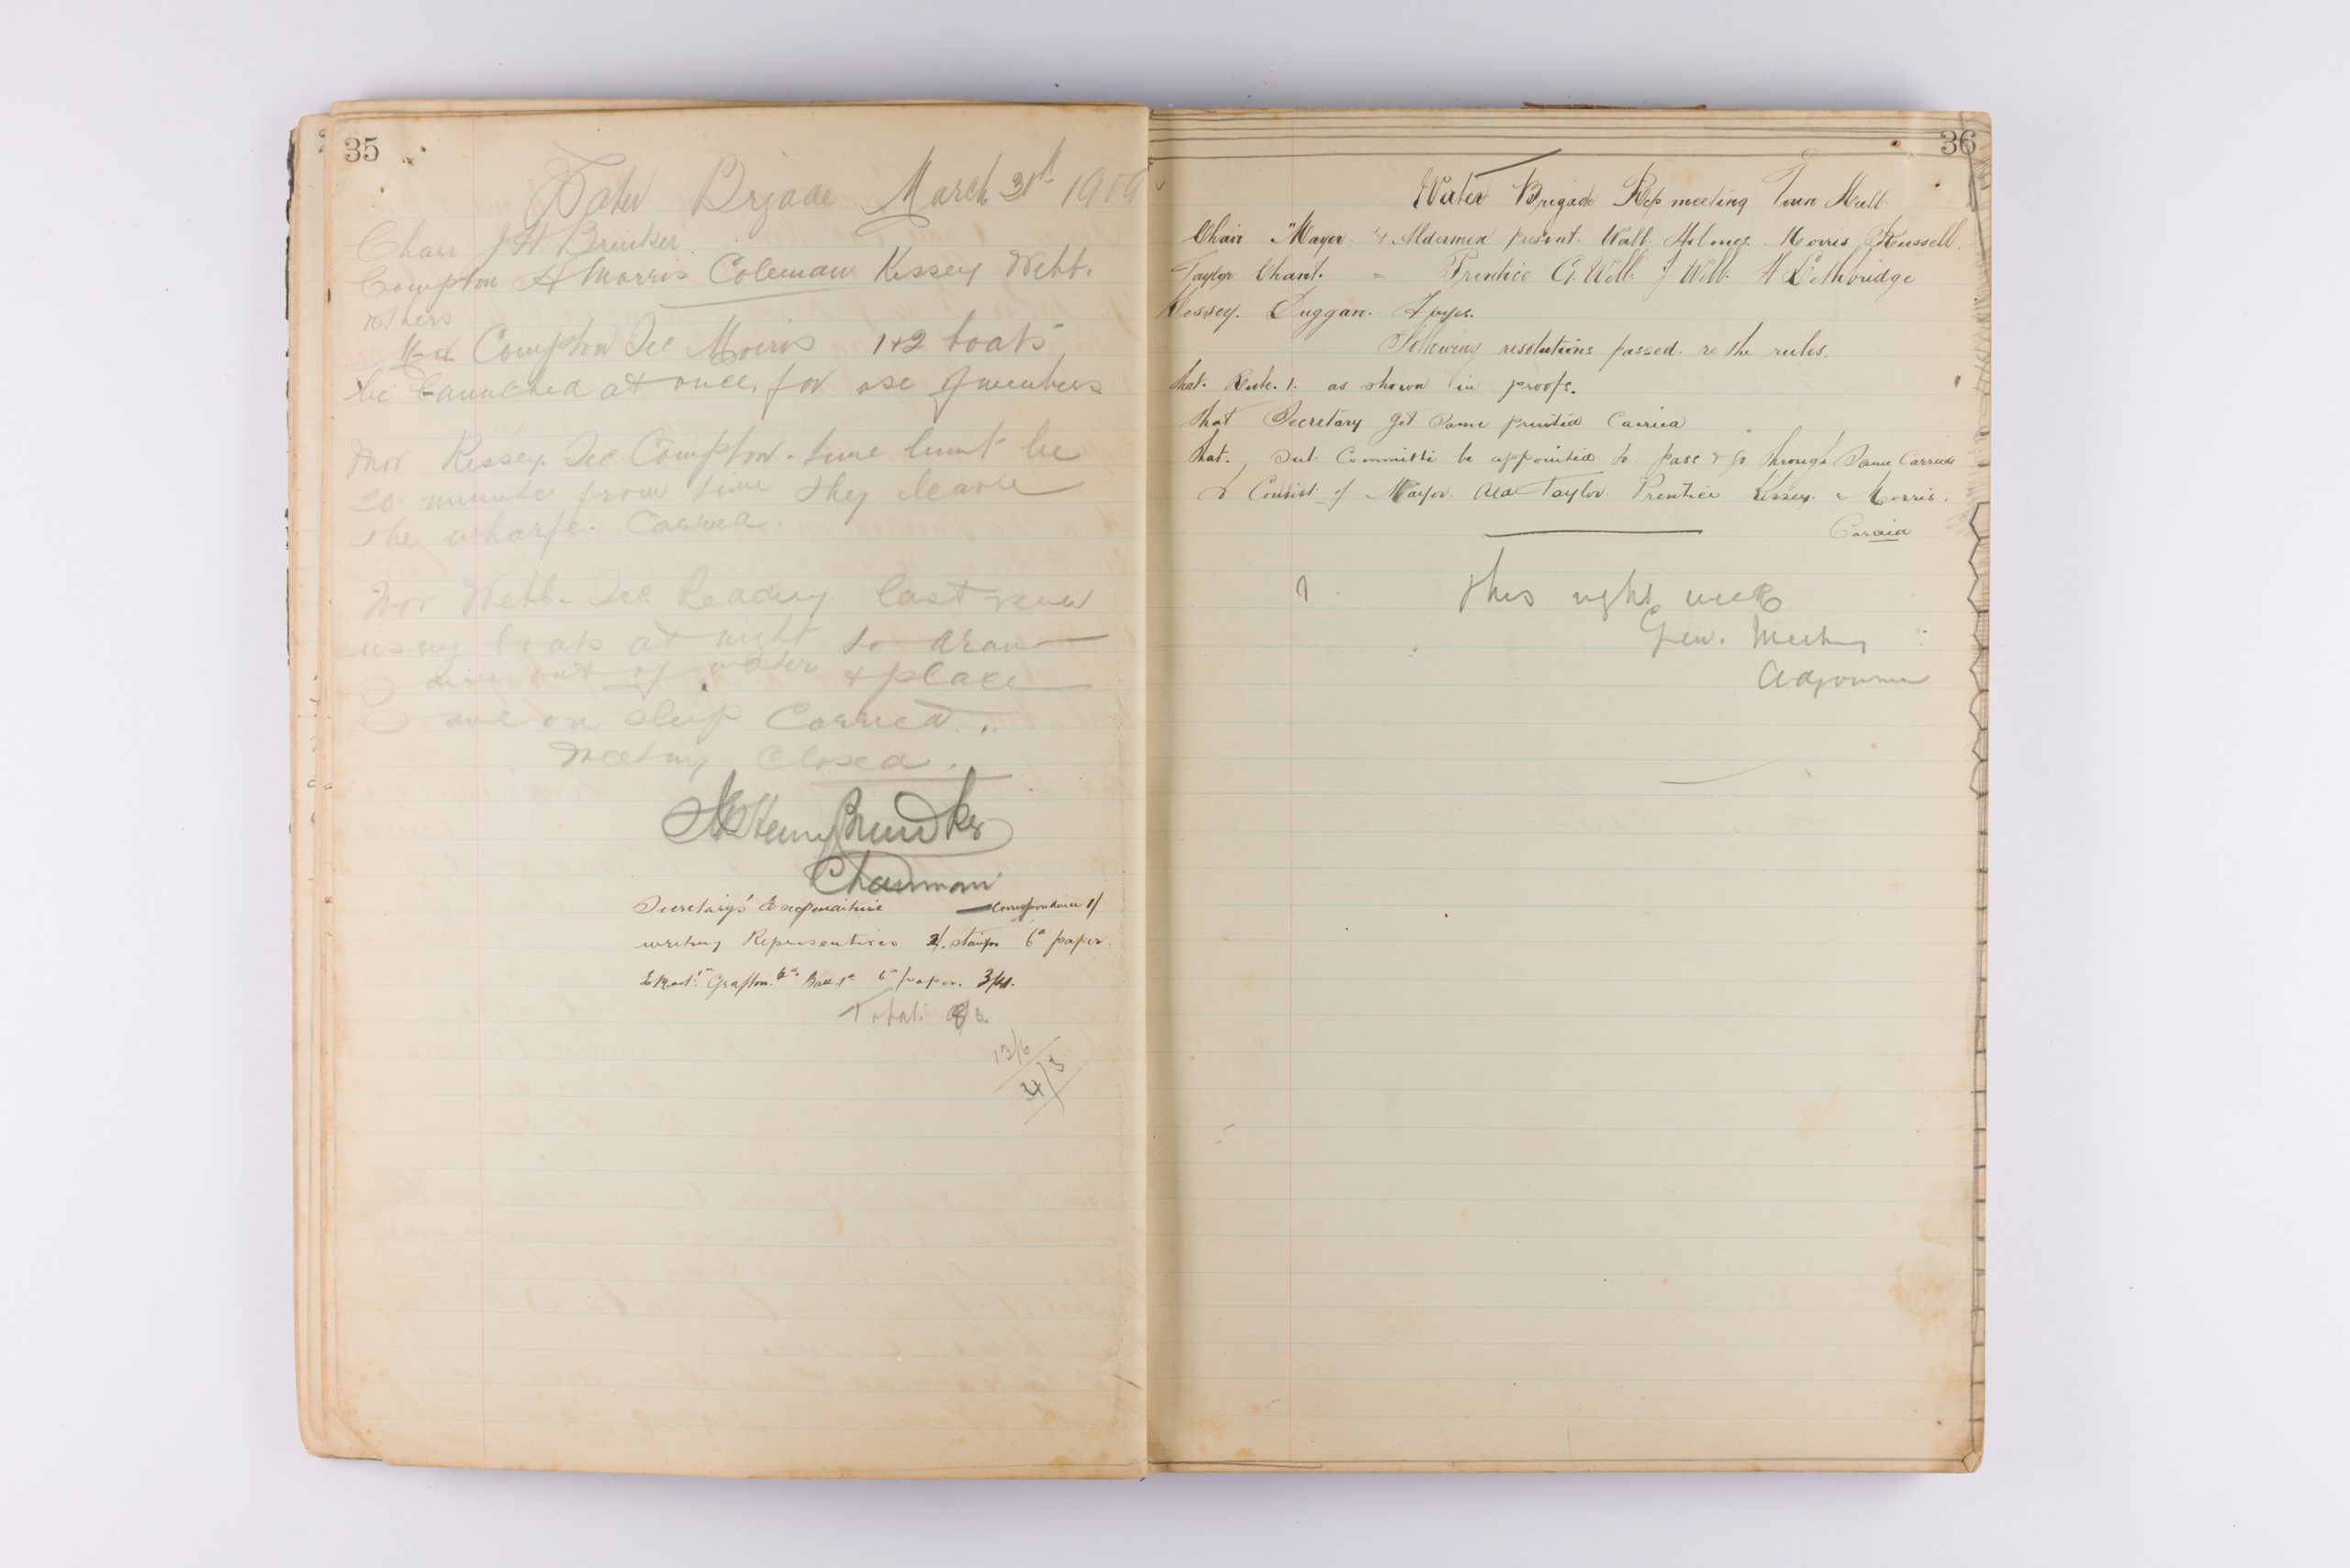 35
Water Brigade March 30th 1909
Chair J H Brunker
Compton H Morris Coleman Kissey Webb.
others
Mov Compton Sec Morris 1+2 boats
be launched at once, for use of members
Mov Kissey. Sec Compton - time limit be
20 minute from time they leave
the wharfe. Carried.
Mov Webb - Sec Reading last crew
using boats at night to draw
out of water & place
Same on slip Carried.
Meeting Closed.
Henry Brunker
Chairman
Secretary's Expenditure Correspondence 1/
writing Representives 2/. stamps 6d paper.
Grafton. paper.
Total.
13/6
4/3
36
Water Brigade Rep meeting Town Hall.
Chair "Mayor. 4 Aldermen present. Wall. Holmes Morris Russell.
Taylor Chant. = Prentice G. Webb. J Webb. H Lethbridge
Kessey. Duggan. Hayes.
Following resolutions passed. re the rules.
that. Rule. 1. as shown in proofs.
that Secretary get Same printed Carried
that. Sub Committe be appointed to pass & go through Same Carried
to Consist of Mayor. Ald Taylor. Prentice Kissey. & Morris.
Carried
This night week
Gen. Meeting
Adjourned